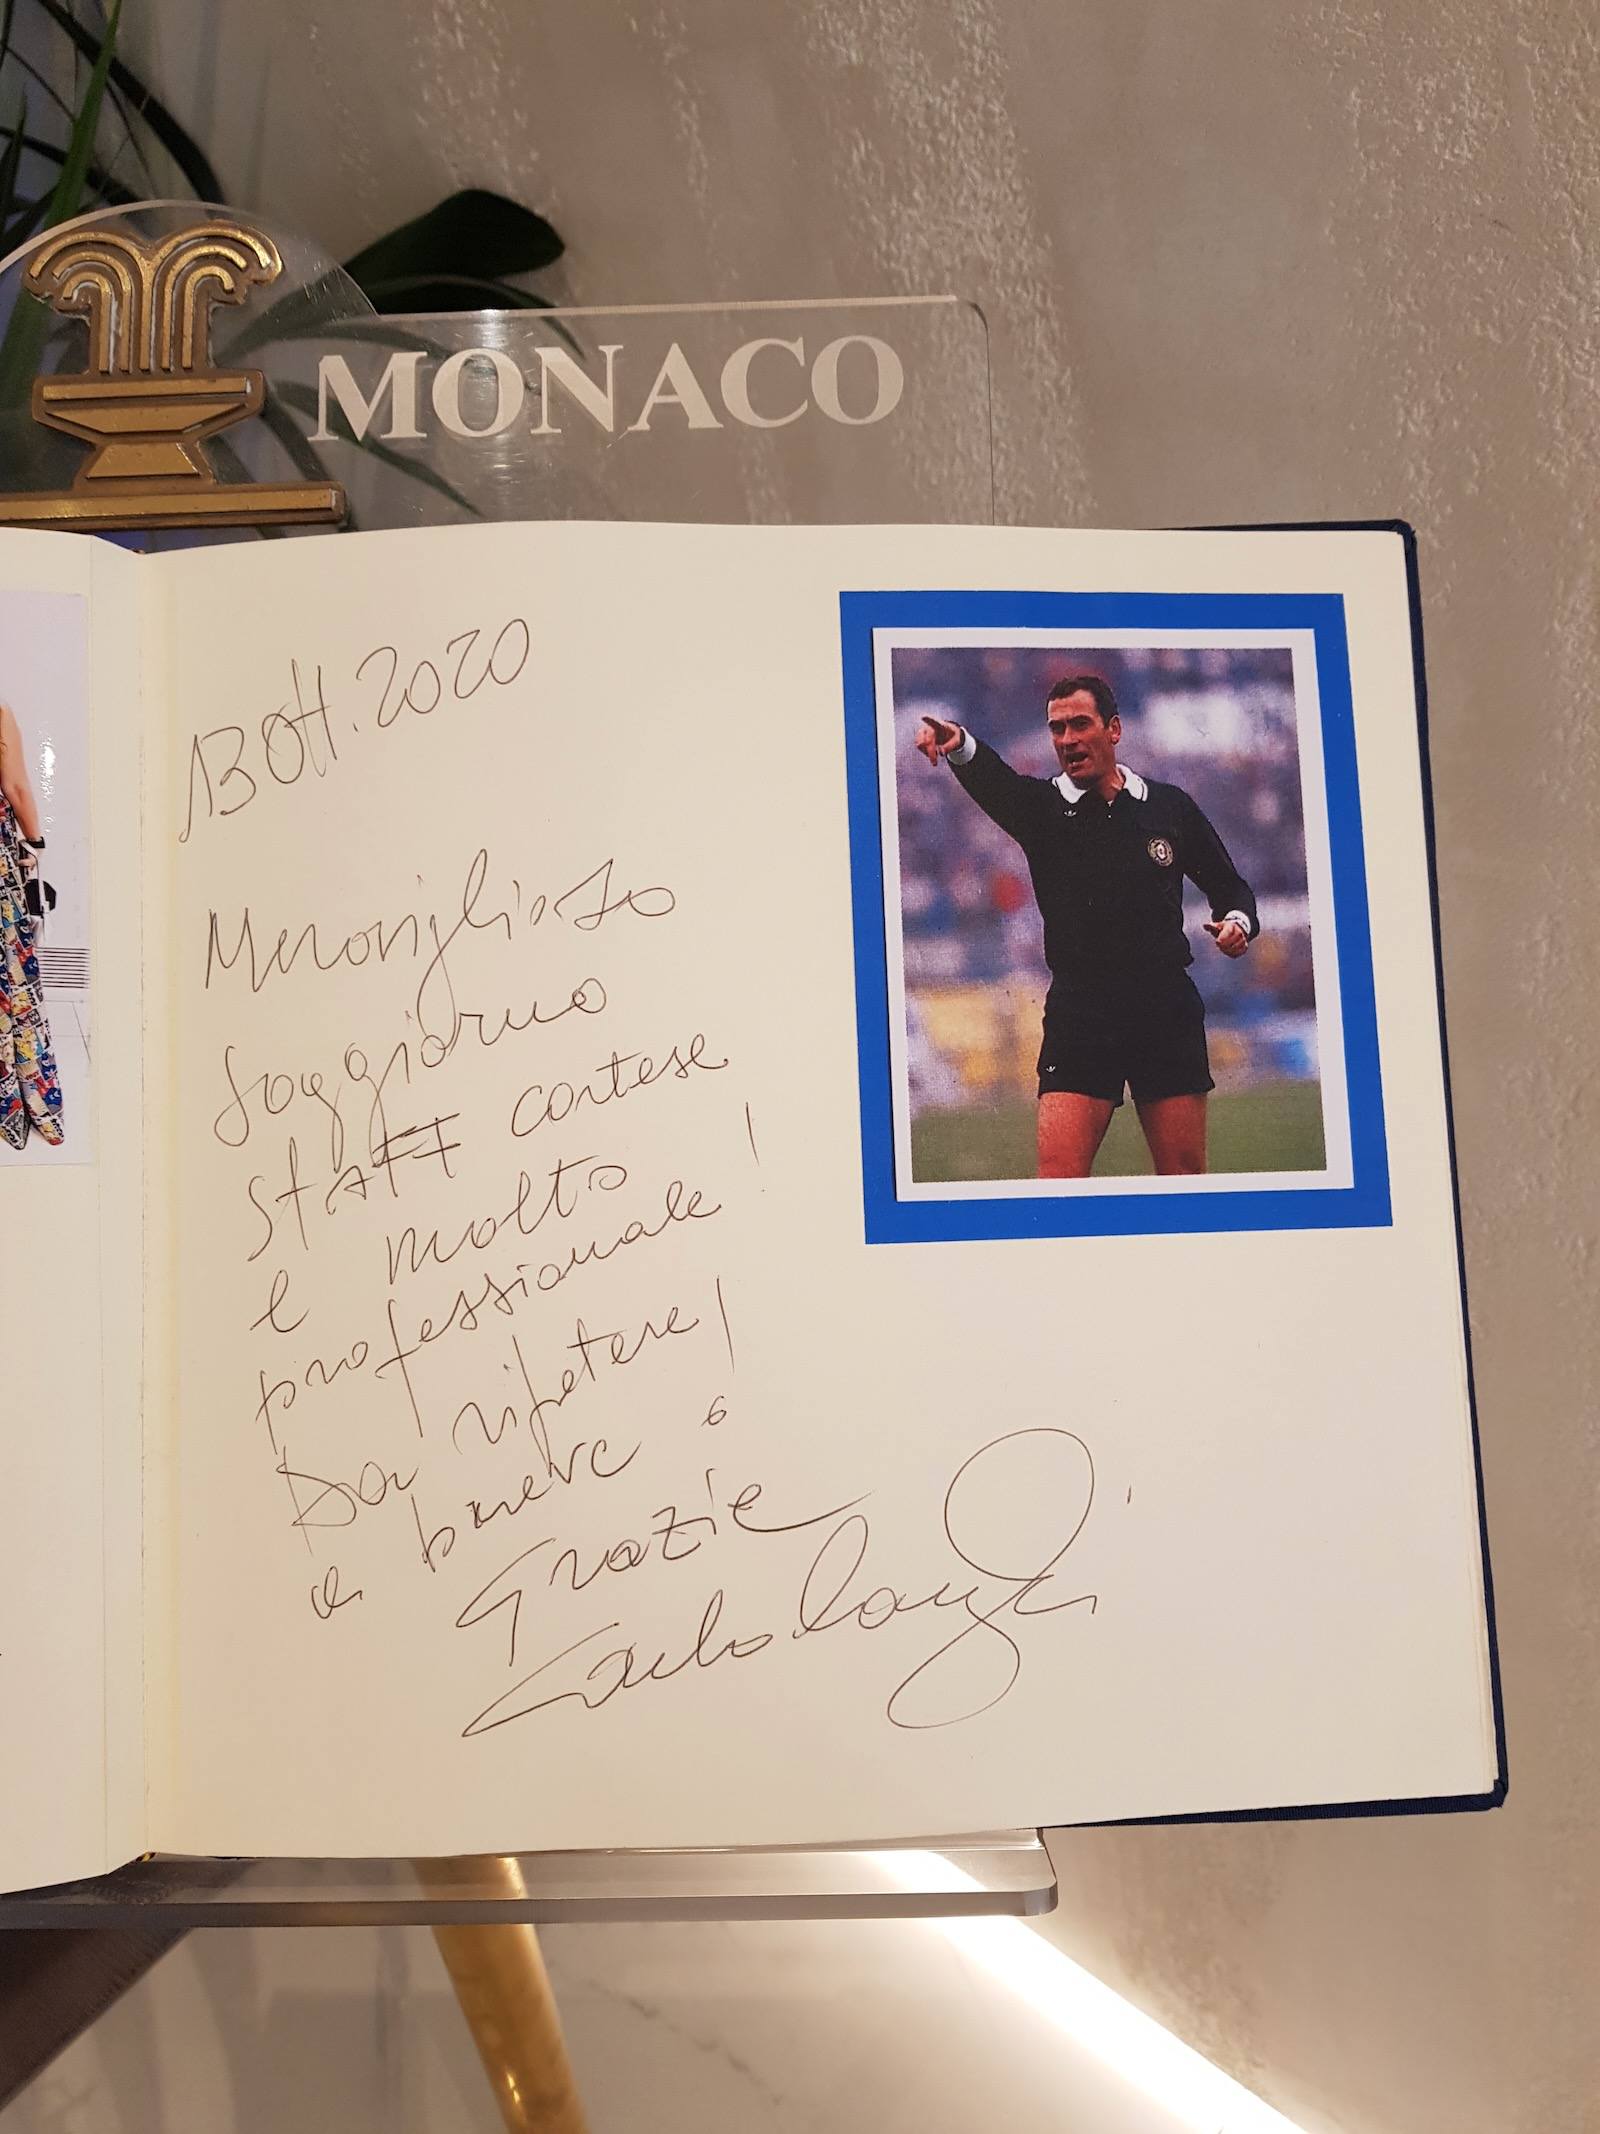 MONACO
13 Ott. 2020
Meraviglioso
soggiorno
staff cortese
e molto
professionale!
Da ripetere!
a breve
Grazie
Carlo Longhi